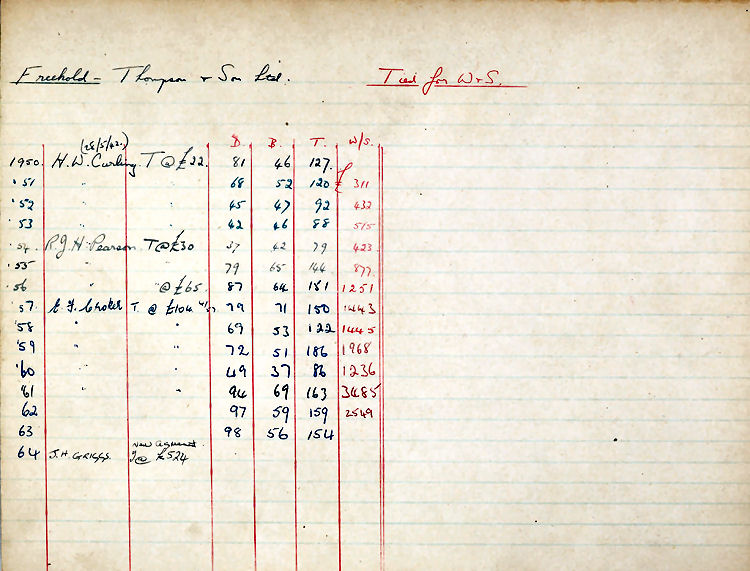 Freehold - Thompson & Son Ltd. Tied for W&S.
(28/5/42.) D. B. T. W/S.
1950. H.W. Curling. T @ £22. 81 46 127. £
'51 " " 68 52 120 311
'52 " " 45 47 92 432
'53 " " 42 46 88 515
'54. R.J.H. Pearson T@£30 37 42 79 423
'55 " 79 65 144 877
'56 " " @ £65. 87 64 151 1251
'57. T. @ £104 79 71 150 1443
'58 " " 69 53 122 1445
'59 " " 72 51 186 1968
'60 " " 49 37 86 1236
'61 " " 94 69 163 3485
62 97 59 159 2549
63 98 56 154
64 J.H. GRIGGS. New agreement. T@ £524